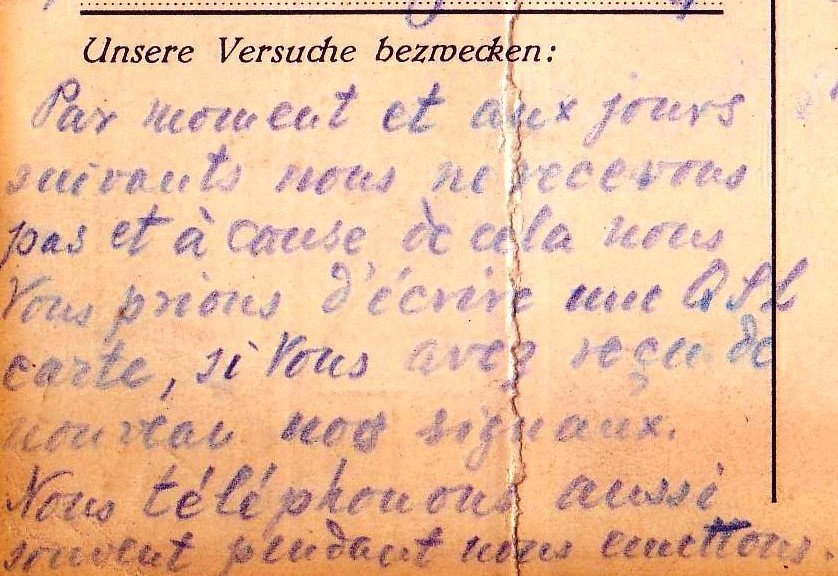 Unsere Versuche bezwecken:
Par moment et aux jours
suivants nous ne recevons
pas et à cause de cela nous
Vous prions d'écrire une QSL
carte, si Vous avez reçu de
nouveau nos signaux.
Nous téléphonons aussi
souvent pendant nous emettons.